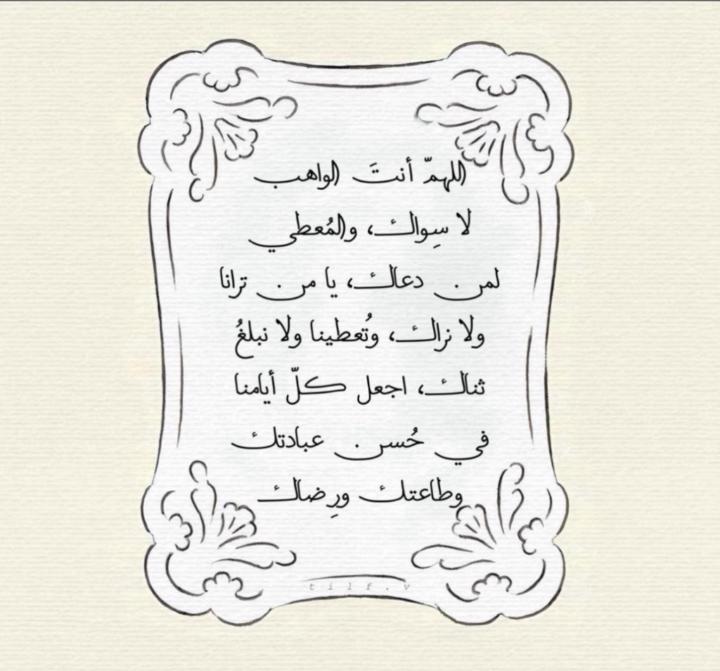 اللهمّ أنتَ الواهب
لا سِواك، والمُعطي
لمن دعاك، يا من ترانا
ولا نراك، وتُعطينا ولا نبلغُ
ثناك، اجعل كلّ أيامنا
في حُسن عبادتك
وطاعتك ورِضاك
tilf.v